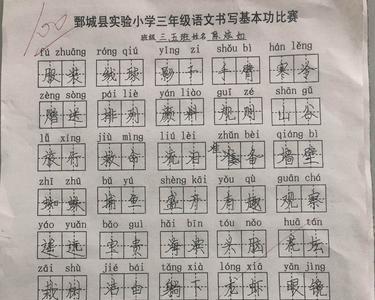 100
鄄城县实验小学三年级语文书写基本功比赛
班级 三.五班 姓名 陈
fú zhuāng róng qiú yǐng zi shǒu bì hán lěng
服装 绒球 影子 手臂 寒冷
zèng sòng pái liè yán liào guī zé shān gǔ
赠送 排列 颜料 规则 山谷
lǚ xíng jiù mìng liú lèi zhǔn bèi qiáng bì
旅行 救命 流泪 准备 墙壁
zhī zhū bǔ yú shèng kāi yǒu qù guān chá
蜘蛛 捕鱼 盛开 有趣 观察
yáo yuǎn bǎo guì hǎi bīn tóu nǎo huā tán
遥远 宝贵 海滨 头脑 花坛
zāi shù jié bái tǎng xià lóng xiā yǎn jìng
栽树 洁白 躺下 龙虾 眼镜